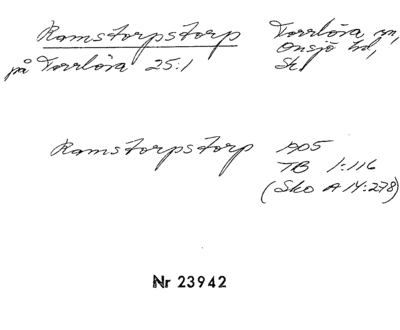 Ramstorpstorp Torrlösa sn,
på Torrlösa 25:1 Onsjö hd,
Sk
Ramstorpstorp 1905
TB 1:116
(Sko A 14:278)
Nr 23942